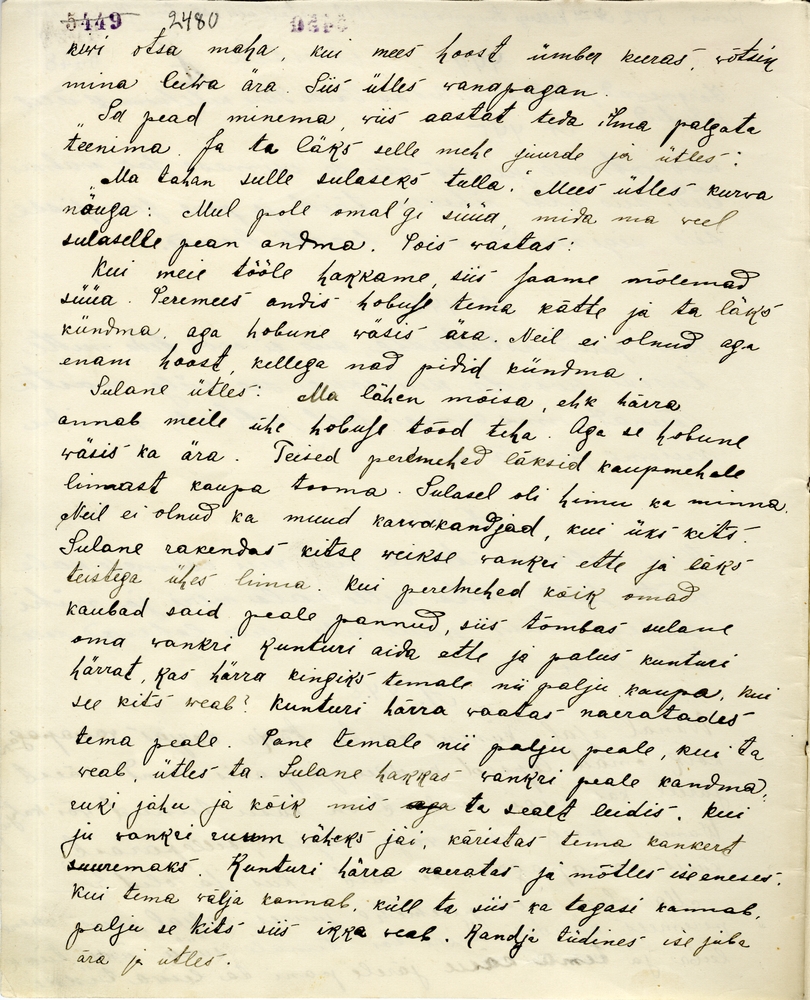 5449 2480
kiwi otsa maha, kui mees hoost ümber keeras, wõtsin
mina leiwa ära. Siis ütles wanapagan.
"Sa pead minema, wiis aastat teda ilma palgata
teenima. Ja ta läks selle mehe juurde ja ütles:
"Ma tahan sulle sulaseks tulla." Mees ütles kurwa
näuga: Mul pole omal'gi süüa, mida ma weel
sulaselle pean andma. Pois wastas:
Kui meie tööle hakkame, siis saame mõlemad
süüa. Peremees andis hobuse tema kätte ja ta läks
kündma, aga hobune wäsis ära. Neil ei olnud aga
enam hoost, kellega nad pidid kündma.
Sulane ütles: Ma lähen mõisa, ehk härra
annab meile ühe hobuse tööd teha. Aga se hobune
wäsis ka ära. Teised peremehed läksid kaupmehele
linnast kaupa tooma. Sulasel oli himu ka minna.
Neil ei olnud ka muud karwakandjad, kui üks kits.
Sulane rakendas kitse weikse wankri ette ja läks
teistega ühes linna. Kui peremehed kõik omad
kaubad said peale pannud, siis tõmbas sulane
oma wankri Kunturi aida ette ja palus kunturi
härrat, kas härra kingiks temale nii palju kaupa, kui
see kits weab? Kunturi härra waatas naeratades
tema peale. Pane temale nii palju peale, kui ta
weab, ütles ta. Sulane hakkas wankri peale kandma,
ruki jahu ja kõik mis aga ta sealt leidis. Kui
ju wankri ruum wäheks jäi, käristas tema kankert
suuremaks. Kunturi härra naeratas ja mõtles iseeneses.
Kui tema wälja kannab, küll ta siis ka tagasi kannab,
palju se kits siis ikka weab. Kandja tüdines ise juba
ära ja ütles.